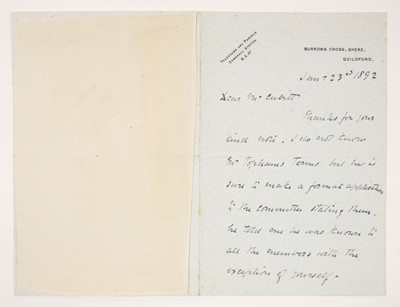 TELEGRAMS AND PARCELS
GOMSHALL STATION
S.E.RY
BURROWS CROSS, SHERE,
GUILDFORD.
Jany 23rd 1892
Dear Mr Cubitt
Thanks for your
kind note. I do not know
Mr Topham's Terms but he is
sure to make a formal application
to the committee stating them.
he told me he was known to
all the members with the
exception of yourself.